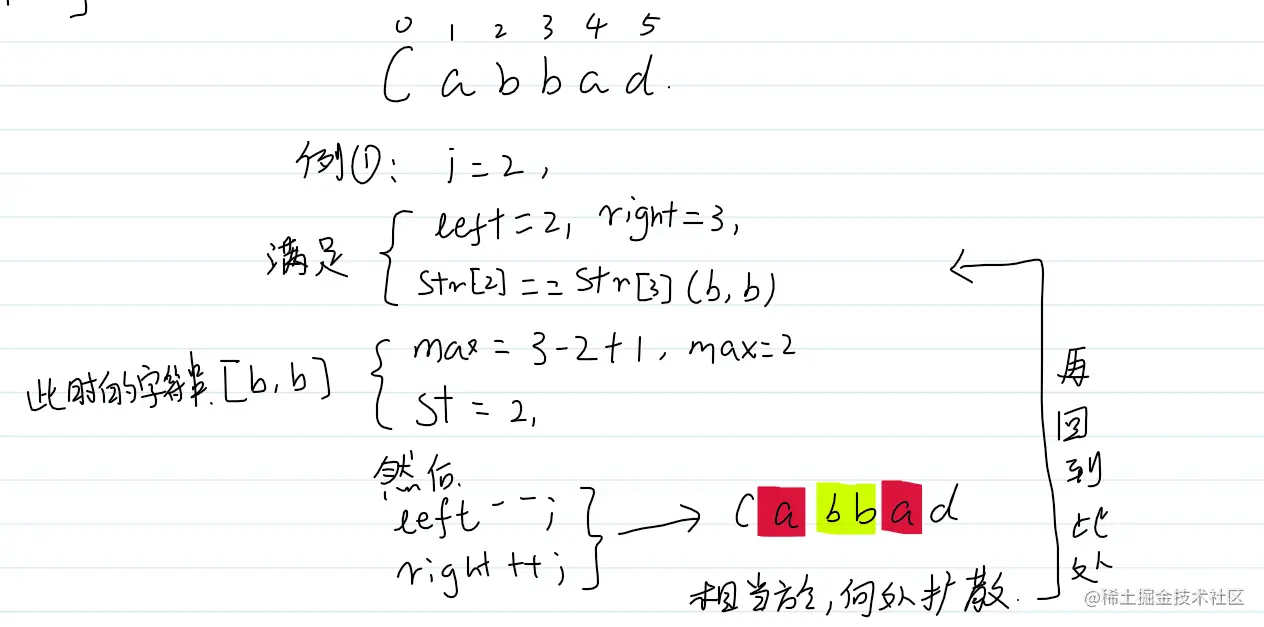 0 1 2 3 4 5
C a b b a d.
例①: j = 2,
满足 left = 2, right = 3,
str[2] == str[3] (b, b)
此时的字符串 [b, b] max = 3-2+1, max=2
st = 2,
然后
left--;
right++;
C a b b a d
相当於,向外扩散.
再回到此处
@稀土掘金技术社区